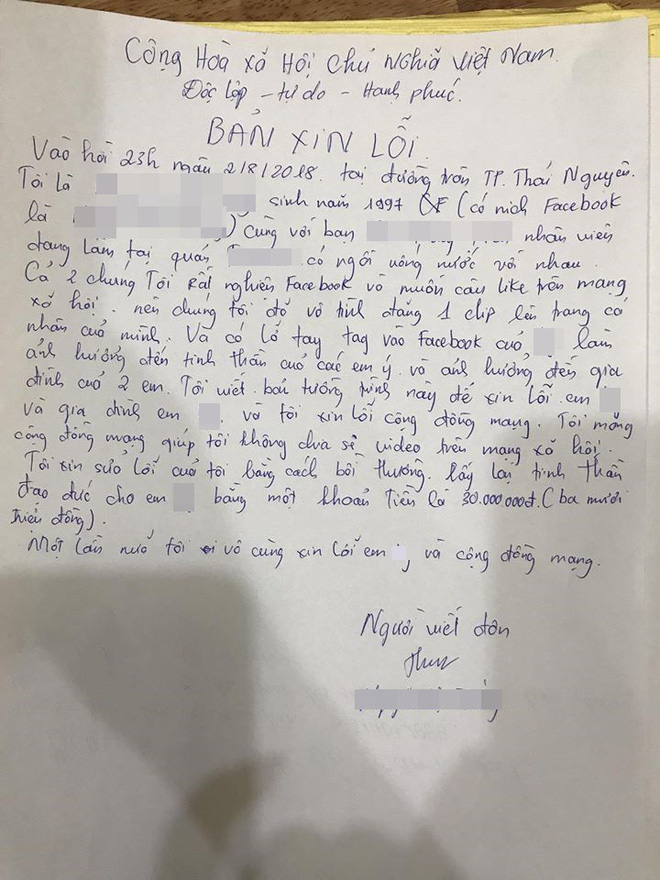 Cộng Hoà xã Hội chủ nghĩa việt Nam.
Độc lập - tự do - Hạnh phúc.
BẢN XIN LỖI
Vào hồi 23h ngày 2/8/2018. tại đường tròn TP. Thái Nguyên.
Tôi là sinh năm 1997 (có nick Facebook
là ) Cùng với bạn nhân viên
đang làm tại quán có ngồi uống nước với nhau.
Cả 2 chúng Tôi Rất nghiện Facebook và muốn câu like trên mạng
xã hội. nên chúng tôi đã vô tình đăng 1 clip lên trang cá
nhân của mình. Và có lỡ tay tag vào Facebook của làm
ảnh hưởng đến tinh thần của các em ý. và ảnh hưởng đến gia
đình của 2 em. Tôi viết bản tường trình này để xin lỗi em
và gia đình em . và tôi xin lỗi cộng đồng mạng. Tôi mong
cộng đồng mạng giúp tôi không chia sẻ video trên mạng xã hội.
Tôi xin sửa lỗi của tôi bằng cách bồi thường. lấy lại tinh thần
đạo đức cho em bằng một khoản Tiền là 30.000.000đ. (ba mươi
triệu đồng).
Một lần nữa tôi vô cùng xin lỗi em , và cộng đồng mạng.
Người viết đơn